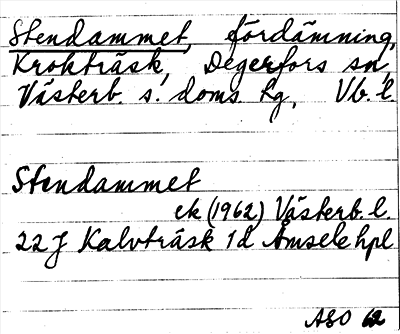 Stendammet, fördämning,
Krokträsk, Degerfors sn,
Västerb. s. doms. tg, Vb. l.
Stendammet
ek (1962) Västerb. l.
22 J Kalvträsk 1d Åmsele hpl
ASO 62